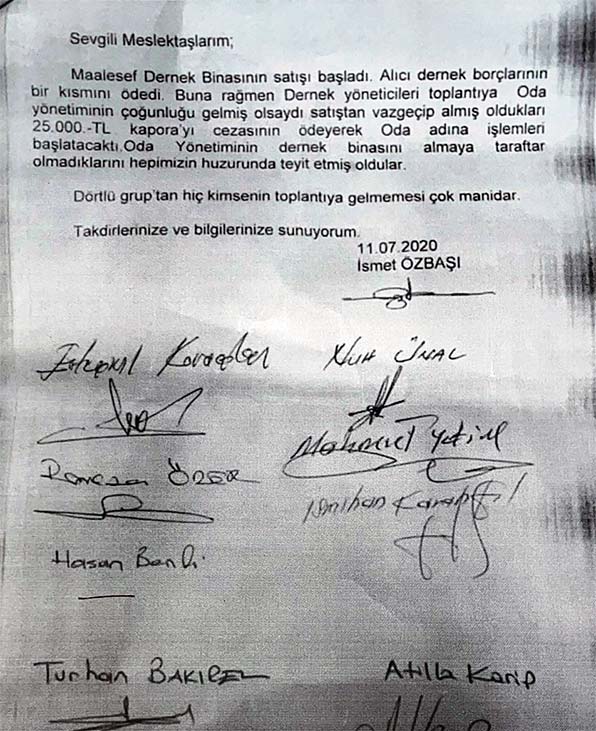 Sevgili Meslektaşlarım;
Maalesef Dernek Binasının satışı başladı. Alıcı dernek borçlarının
bir kısmını ödedi. Buna rağmen Dernek yöneticileri toplantıya Oda
yönetiminin çoğunluğu gelmiş olsaydı satıştan vazgeçip almış oldukları
25.000.-TL kapora'yı cezasının ödeyerek Oda adına işlemleri
başlatacaktı.Oda Yönetiminin dernek binasını almaya taraftar
olmadıklarını hepimizin huzurunda teyit etmiş oldular.
Dörtlü grup'tan hiç kimsenin toplantıya gelmemesi çok manidar.
Takdirlerinize ve bilgilerinize sunuyorum.
11.07.2020
İsmet ÖZBAŞI
Nuh ÜNAL
Mahmut
ÖZER
Hasan
Turhan
Atilla Karip